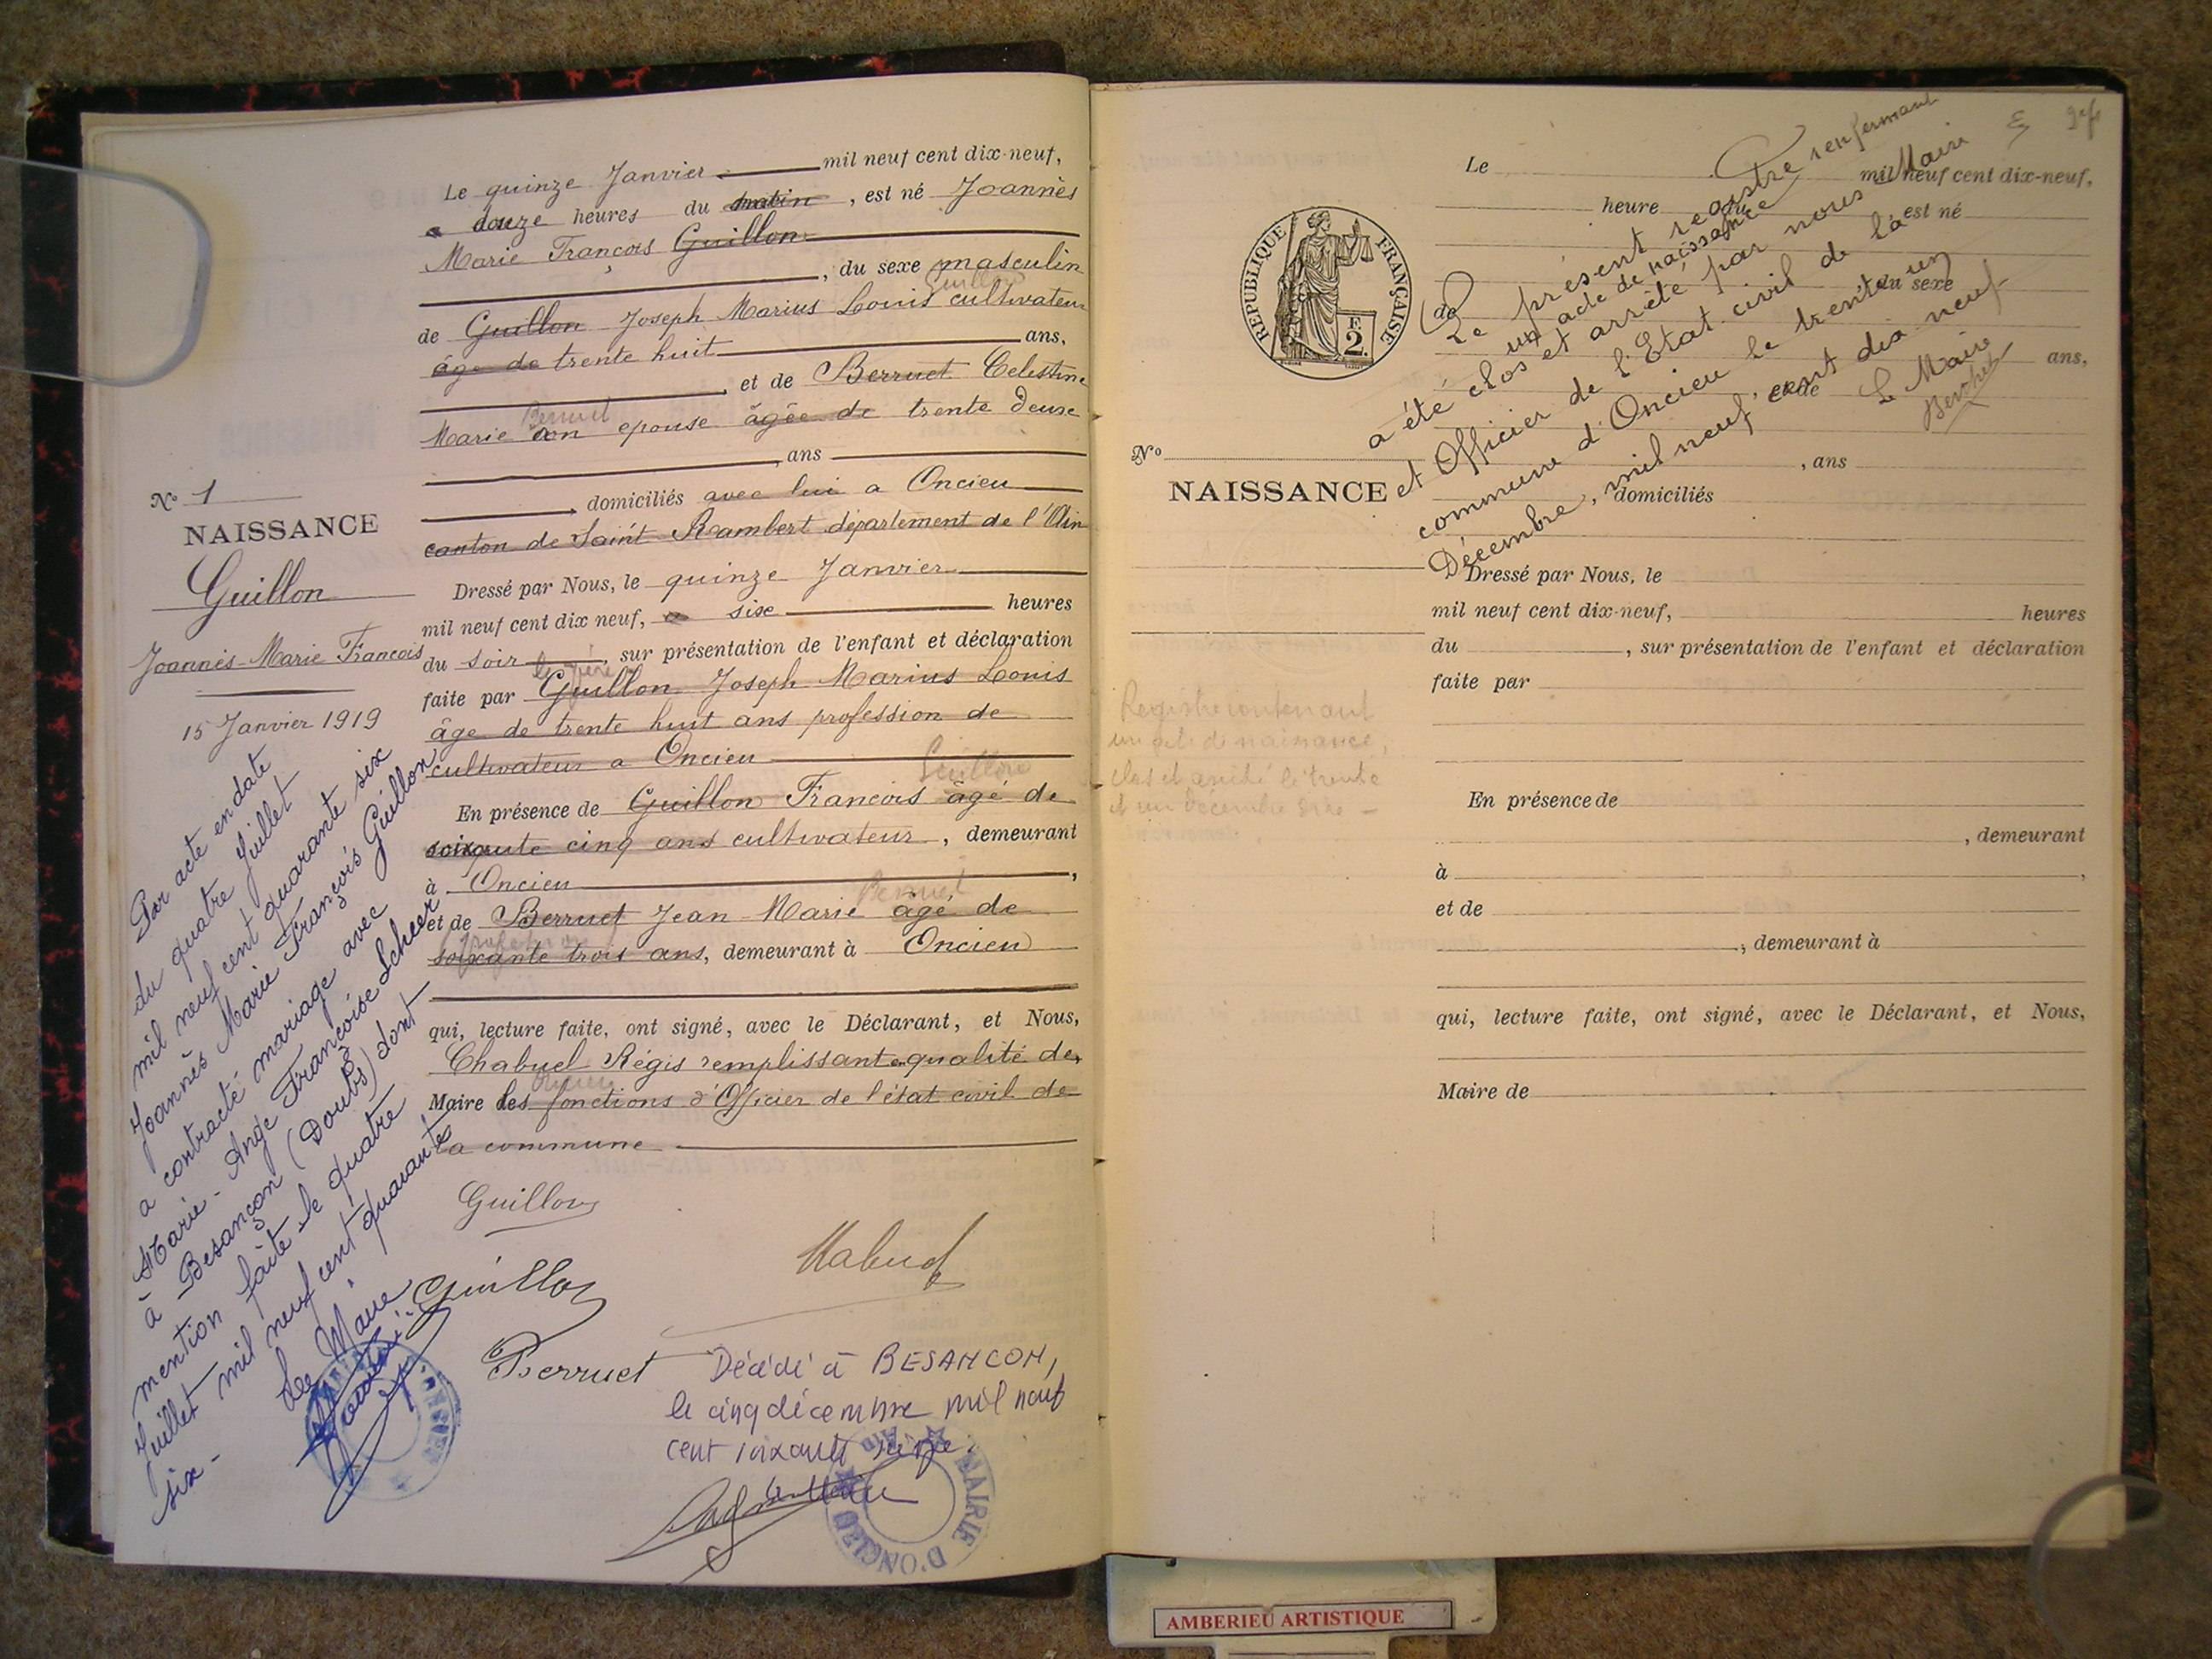 Le quinze Janvier mil neuf cent dix-neuf,
a douze heures du matin, est né Joannès
Marie François Guillon
, du sexe masculin
Guillon
de Guillon Joseph Marius Louis cultivateur
âge de trente huit ans,
, et de Berruet Celestine
Berruet
Marie son epouse âgée de trente deux
, ans
domiciliés avec lui a Oncieu
canton de Saint Rambert département de l'Ain
Dressé par Nous, le quinze Janvier
mil neuf cent dix neuf, a six heures
du soir, sur présentation de l'enfant et déclaration
le père
faite par Guillon Joseph Marius Louis
âge de trente huit ans profession de
cultivateur a Oncieu
Guillon
En présence de Guillon Francois âgé de
soixante cinq ans cultivateur, demeurant
à Oncieu,
Berruet
et de Berruet Jean Marie âgé de
profession
soixante trois ans, demeurant à Oncieu
qui, lecture faite, ont signé, avec le Déclarant, et Nous,
Chabuel Régis remplissant en qualité de
Oncieu
Maire les fonctions d'Officier de l'état civil de
la commune
Guillon
Guillon
Berruet
Décédé à BESANCON,
le cinq décembre mil neuf
cent soixante seize.
MAIRIE D'ONCIEU
AIN
N° 1
NAISSANCE
Guillon
Joannès Marie Francois
15 Janvier 1919
Par acte en date
du quatre Juillet
mil neuf cent quarante six
Joannès Marie François Guillon
a contracté mariage avec
Marie-Ange Françoise Scheer
à Besançon (Doubs) dont
mention faite le quatre
Juillet mil neuf cent quarante
six-
Le Maire
REPUBLIQUE FRANÇAISE
F.
2.
N°
NAISSANCE
Registre contenant
un acte de naissance,
clos et arrêté le trente
et un décembre
Le mil neuf cent dix-neuf,
heure du est né
du sexe
de
ans,
et de
, ans
domiciliés
Dressé par Nous, le
mil neuf cent dix-neuf, heures
du , sur présentation de l'enfant et déclaration
faite par
En présence de
, demeurant
à ,
et de
, demeurant à
qui, lecture faite, ont signé, avec le Déclarant, et Nous,
Maire de
Le présent registre renfermant
un acte de naissance
a été clos et arrêté par nous Maire
et Officier de l'Etat civil de la
commune d'Oncieu le trente un
Décembre, mil neuf cent dix neuf
Le Maire
AMBERIEU ARTISTIQUE